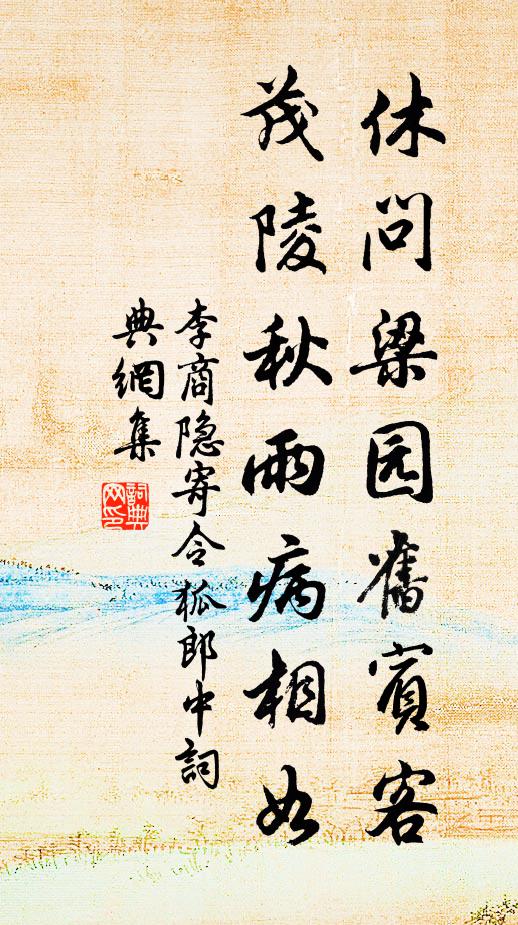 休问梁园舊賓客
茂陵秋雨病相如
李商隐寄令狐郎中詞
典網集
詞典
网印